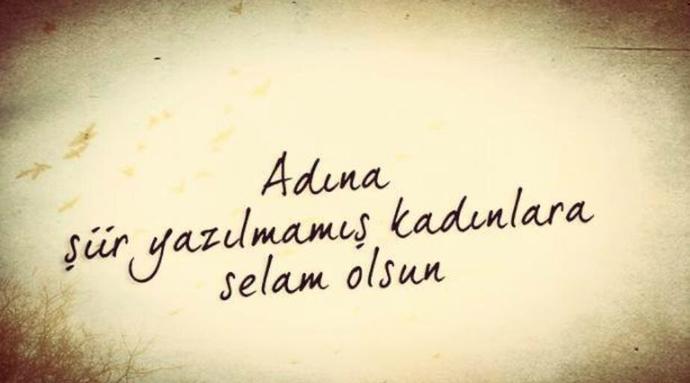 Adına
şiir yazılmamış kadınlara
selam olsun